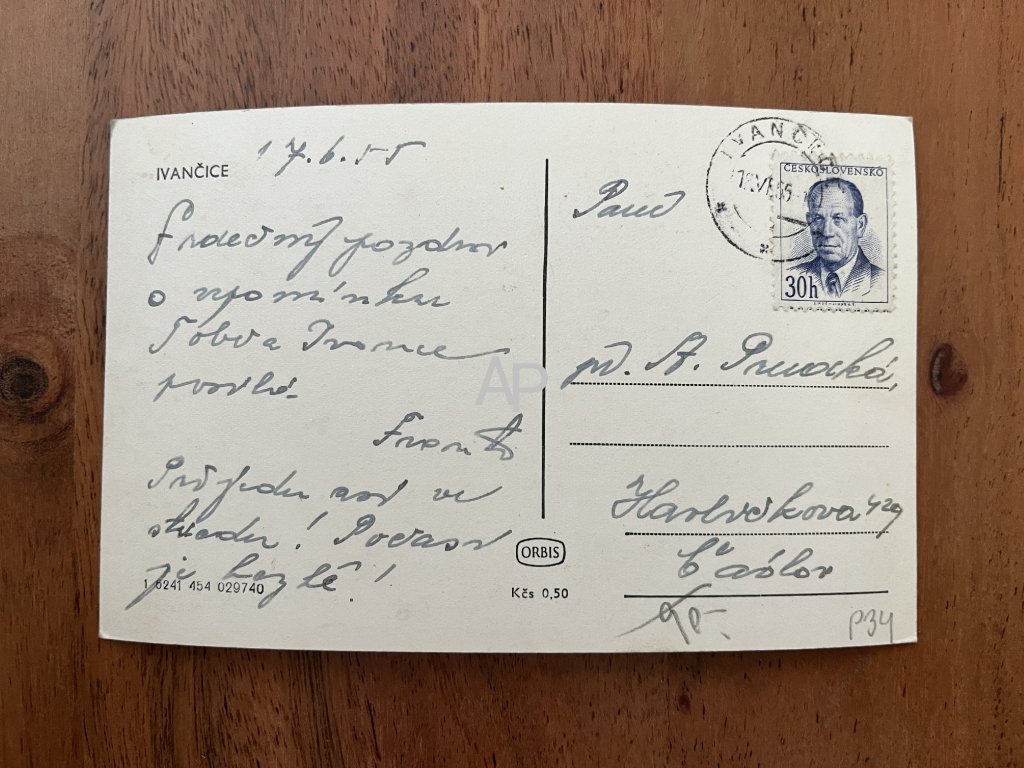 IVANČICE
17.6.55
Srdečný pozdrav
a vzpomínku
Tobě a Ivance
posílá
Frant
Přijedu asi ve
středu! Počasí
je hezké!
1 6241 454 029740
ORBIS
Kčs 0,50
AP
IVANČICE
VI.55
ČESKOSLOVENSKO
30h
Paní
pí. A.
Havlíčkova 429
Čáslav
90-
P34